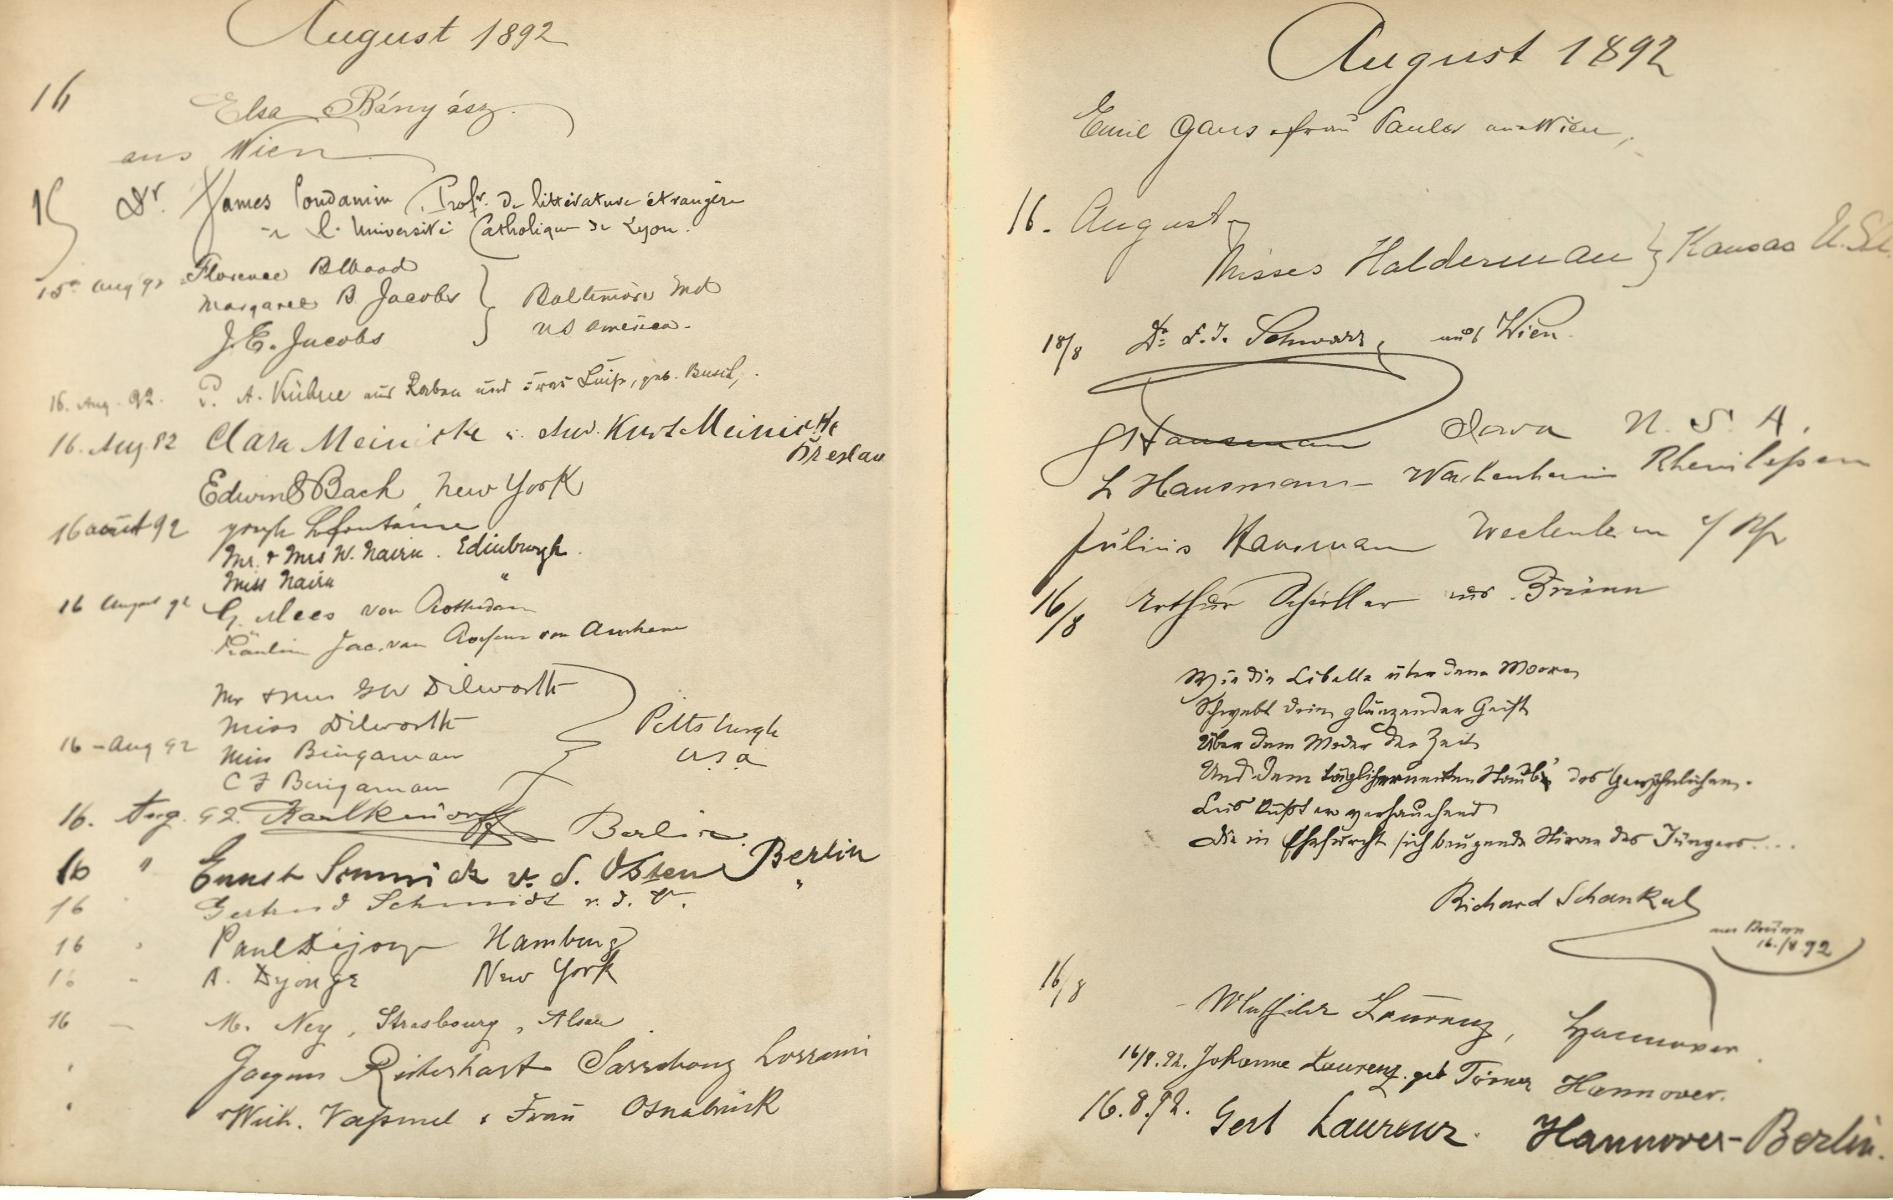 August 1892
16
Elsa Bányász.
aus Wien
16 Dr. James Condamin (Profr. de littérature étrangère
à l'Université Catholique de Lyon.
15 Aug 92 Florence
Margaret B. Jacobs Baltimore Md
J. E. Jacobs US America.
16. Aug. 92. A. Kühne aus und Frau Luise, geb. Busch,
16. Aug. 82 Clara Meinicke u. Kurt Meinicke
Breslau
Edwin S Bach New York
16 août 92 Lafontaine
Mr. & Mrs W. Nairn. Edinburgh.
Miss Nairn "
16 August 92 G. Mees von Rotterdam
Fräulein Jac. van von Arnhem
Mr & Mrs GW Dilworth
Miss Dilworth Pittsburgh
16 - Aug 92 Miss Bingaman U S a
C F Bingaman
16. Aug. 92. Berlin
16 " Ernst v. d. Osten Berlin
16 " Gertrud Schmidt v. d. O. "
16 " Paul Hamburg
16 " A. New York
16 — M. Ney, Strasbourg, Alsace
" Jacques Sarrebourg Lorraine
" Wilh. & Frau Osnabrück
August 1892
Emil Gans & frau Paula aus Wien,
16. August
Misses Halderman } Kansas U.S.A.
18/8 Dr. Schwarz, aus Wien.
G Hausmann Iowa U. S. A.
L Hausmann Wachenheim Rheinhessen
Julius Hausmann Wachenheim
16/8 Arthur Schüller aus Brünn
Wie die Libelle über dem Moore,
Schwebt dein glänzender Geist
Über dem Moder der Zeit
Und dem täglicherneuten Staub' des Gewöhnlichen.
Leis küßt er verhauchend
Die in Ehrfurcht sich beugende Stirne des Jüngers....
Richard Schaukal
aus Brünn
16./8 92
16/8 Mathilde Laurenz, Hannover.
16/8. 92. Johanne Laurenz. geb Hannover.
16. 8. 92. Gert Laurenz. Hannover-Berlin.